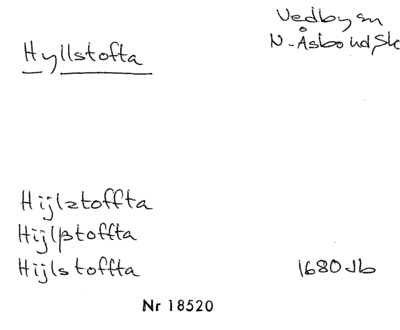 Vedby sn
Hyllstofta N-Åsbo hd, Sk
Hijlztoffta
Hijlβtoffta
Hijlstoffta 1680 Jb
Nr 18520